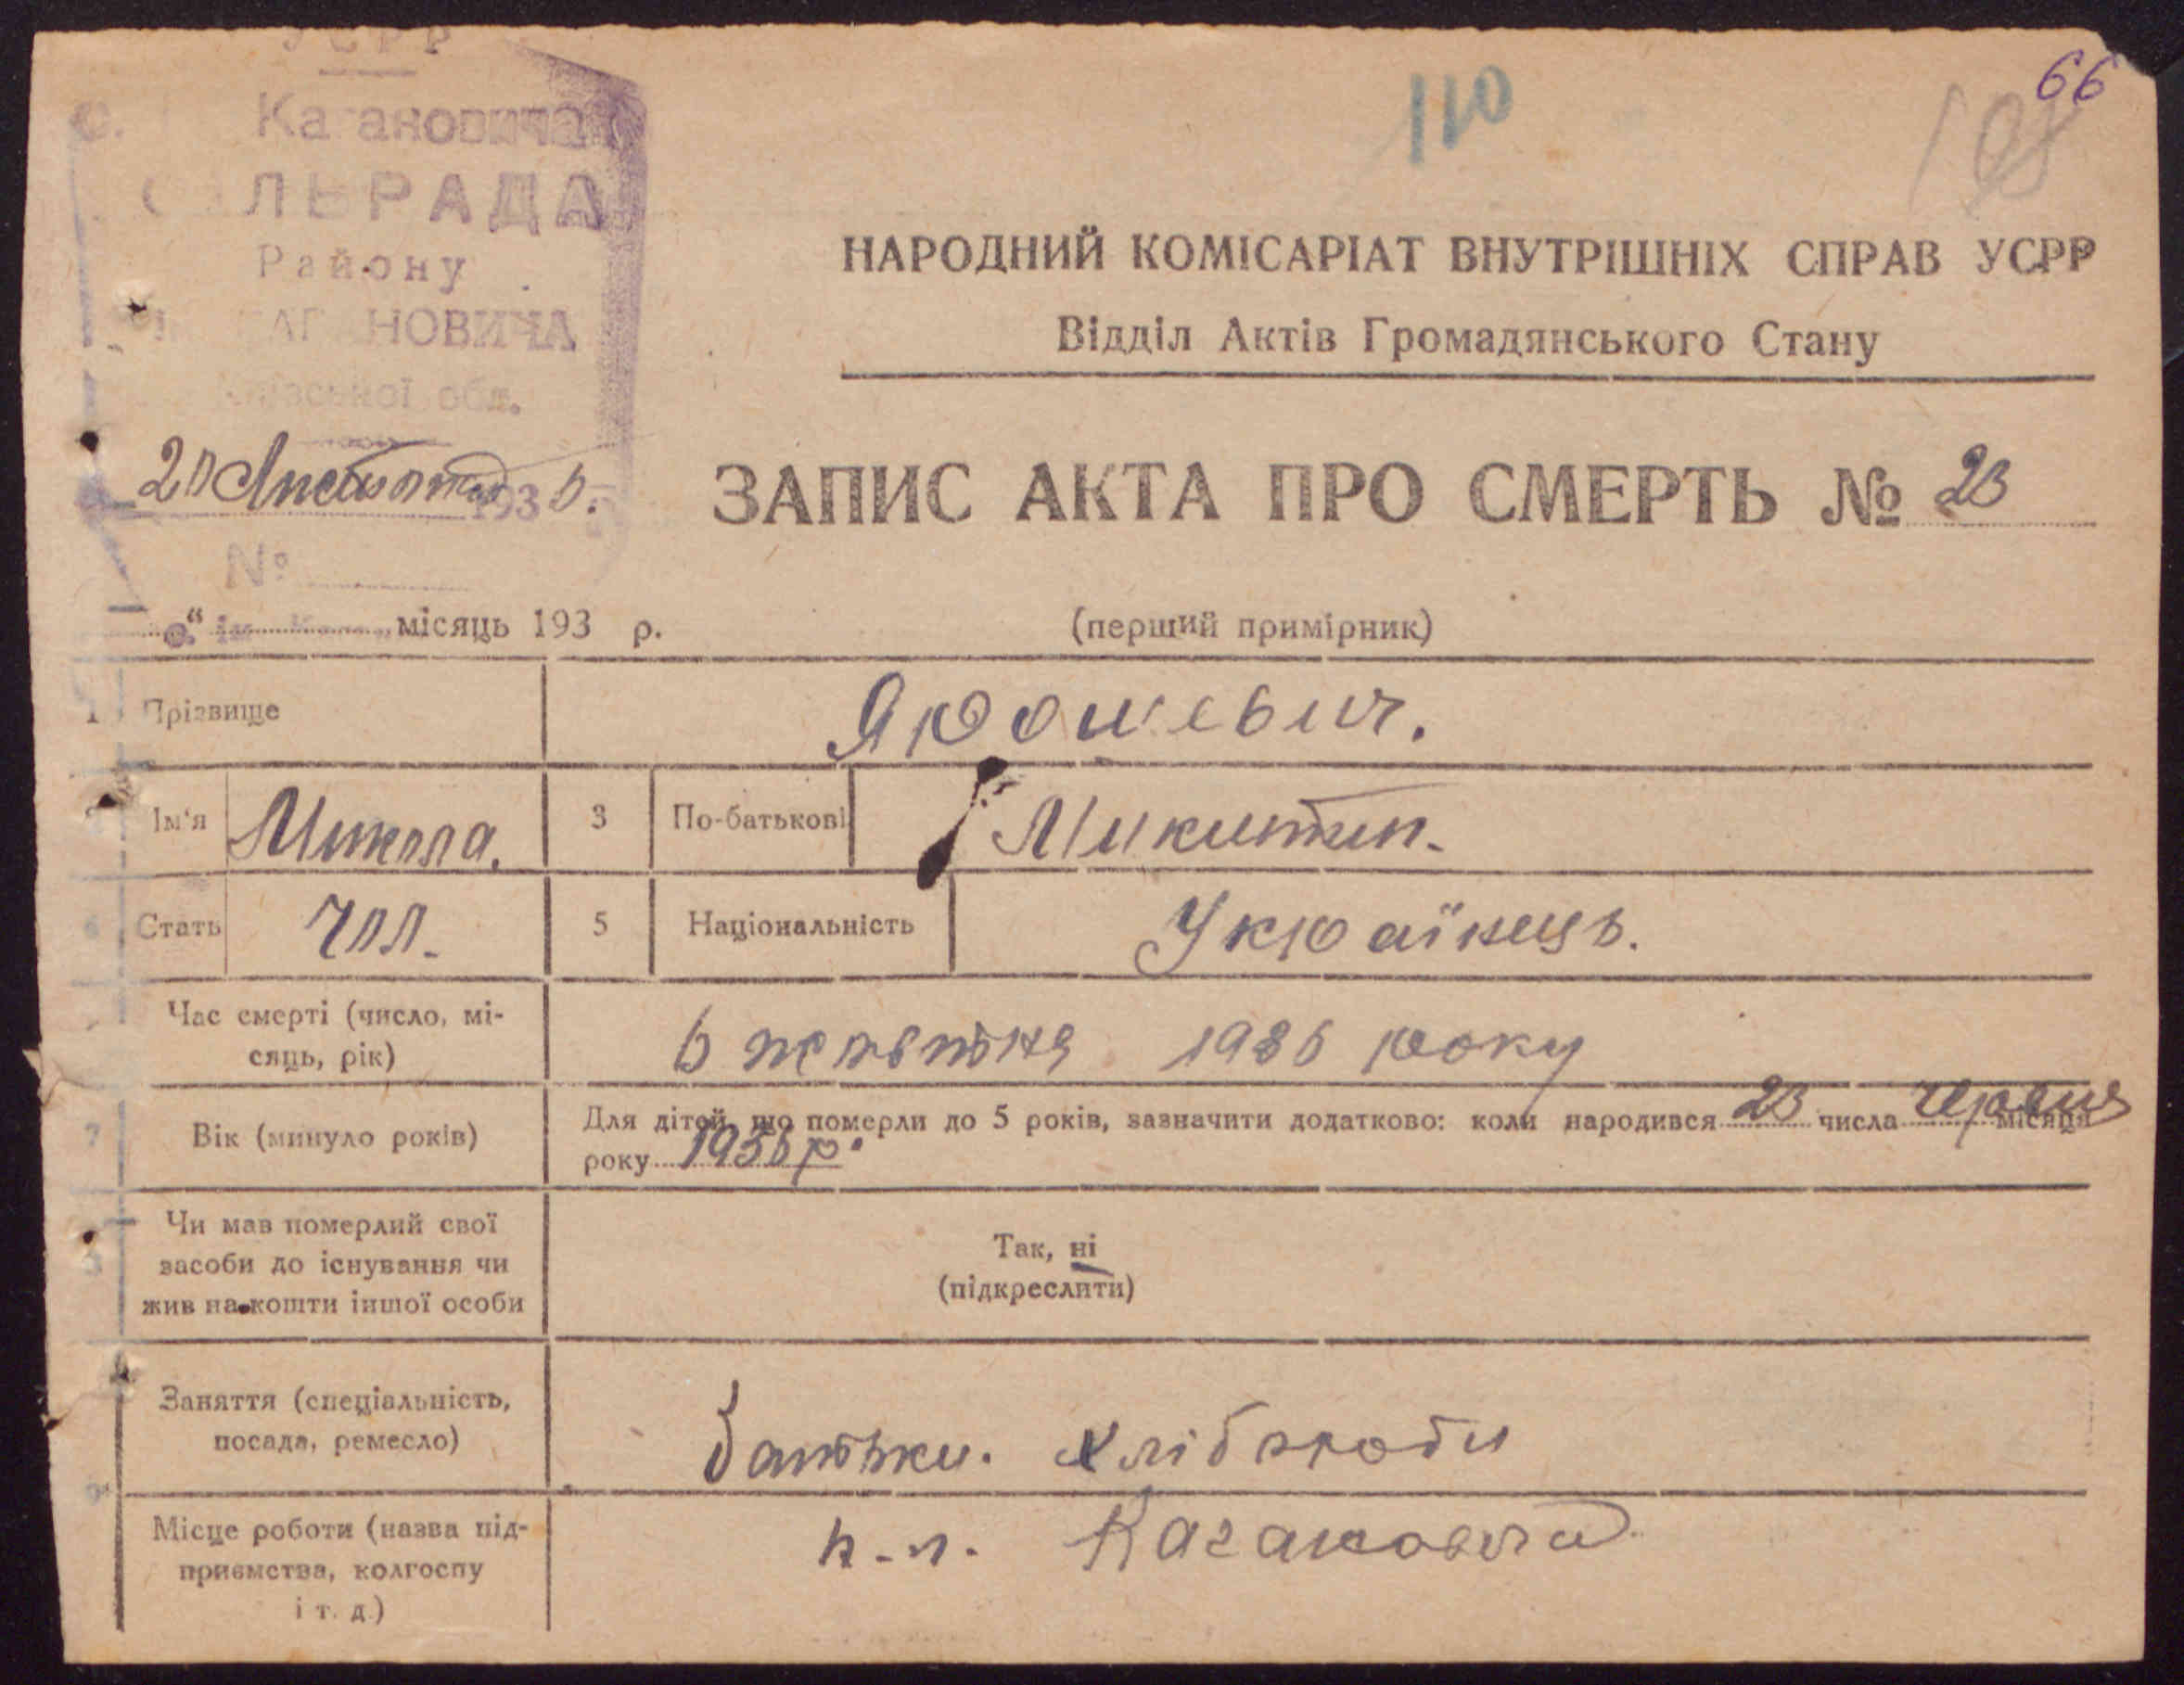 УСРР
110
66
с. Кагановича
СІЛЬРАДА
Району
КАГАНОВИЧА
Київської обл.
НАРОДНИЙ КОМІСАРІАТ ВНУТРІШНІХ СПРАВ УСРР
Відділ Актів Громадянського Стану
20 Листопад 1936.
ЗАПИС АКТА ПРО СМЕРТЬ № 23
№
місяць 193 р.
(перший примірник)
1 Прізвище Ярошевич.
Ім'я Микола. 3 По-батькові Микитин.
Стать Чол. 5 Національність Українець.
Час смерті (число, мі-
сяць, рік) 6 жовтня 1936 року
7 Вік (минуло років) Для дітей, що померли до 5 років, зазначити додатково: коли народився 23 числа червня місяця
року 1936 р.
Чи мав померлий свої
засоби до існування чи
жив на кошти іншої особи
Так, ні
(підкреслити)
Заняття (спеціальність,
посада, ремесло) батьки. хлібороби
Місце роботи (назва під-
приємства, колгоспу
і т. д.)
к-п. Кагановича